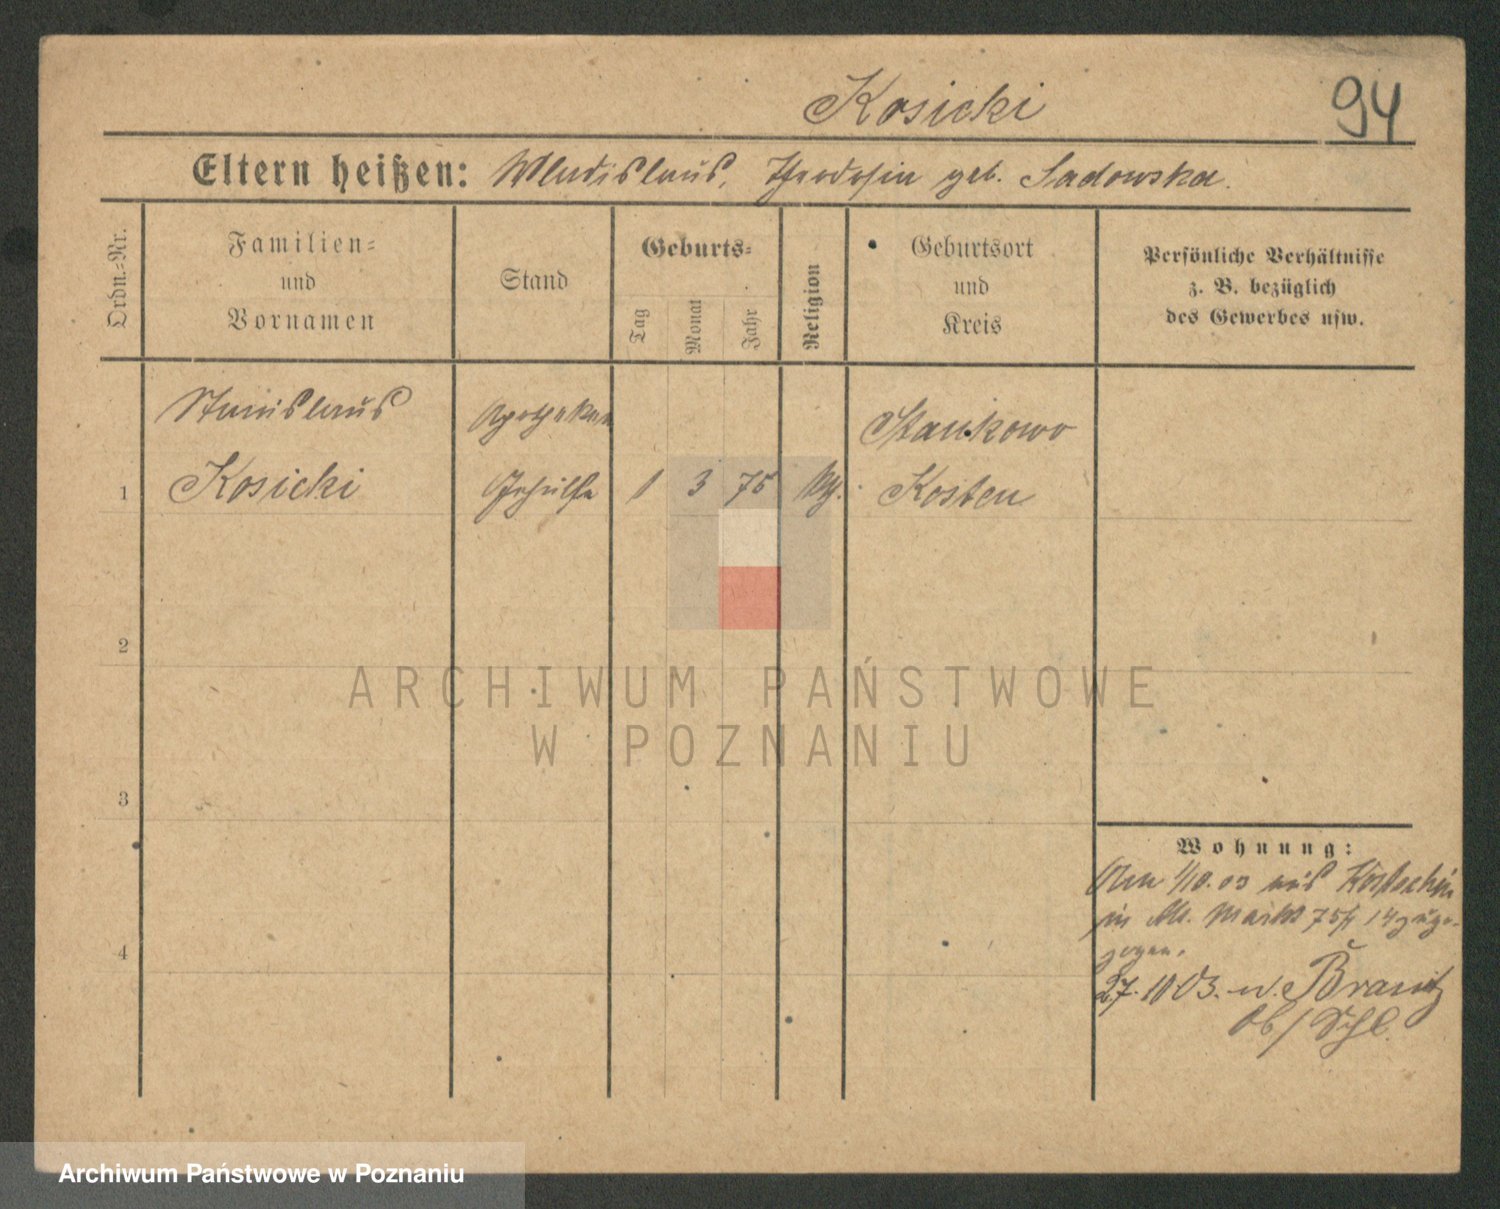 Kosicki
94
Eltern heißen: Wladislaus, Theodosia geb. Sadowska.
Ordn.-Nr.
Familien-
und
Vornamen
Stand
Geburts-
Tag
Monat
Jahr
Religion
Geburtsort
und
Kreis
Persönliche Verhältnisse
z. B. bezüglich
des Gewerbes usw.
Stanislaus
Apotheken
Stankowo
1
Kosicki
Gehülfe
1
3
75
Kosten
2
3
4
Wohnung:
1/10.03 aus Kostschin
in Alt. Markt 75/ 14 zuge-
zogen.
27.10 03.
ARCHIWUM PAŃSTWOWE
W POZNANIU
Archiwum Państwowe w Poznaniu